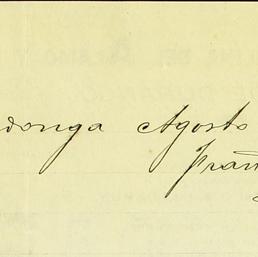 donga Agosto
Fran